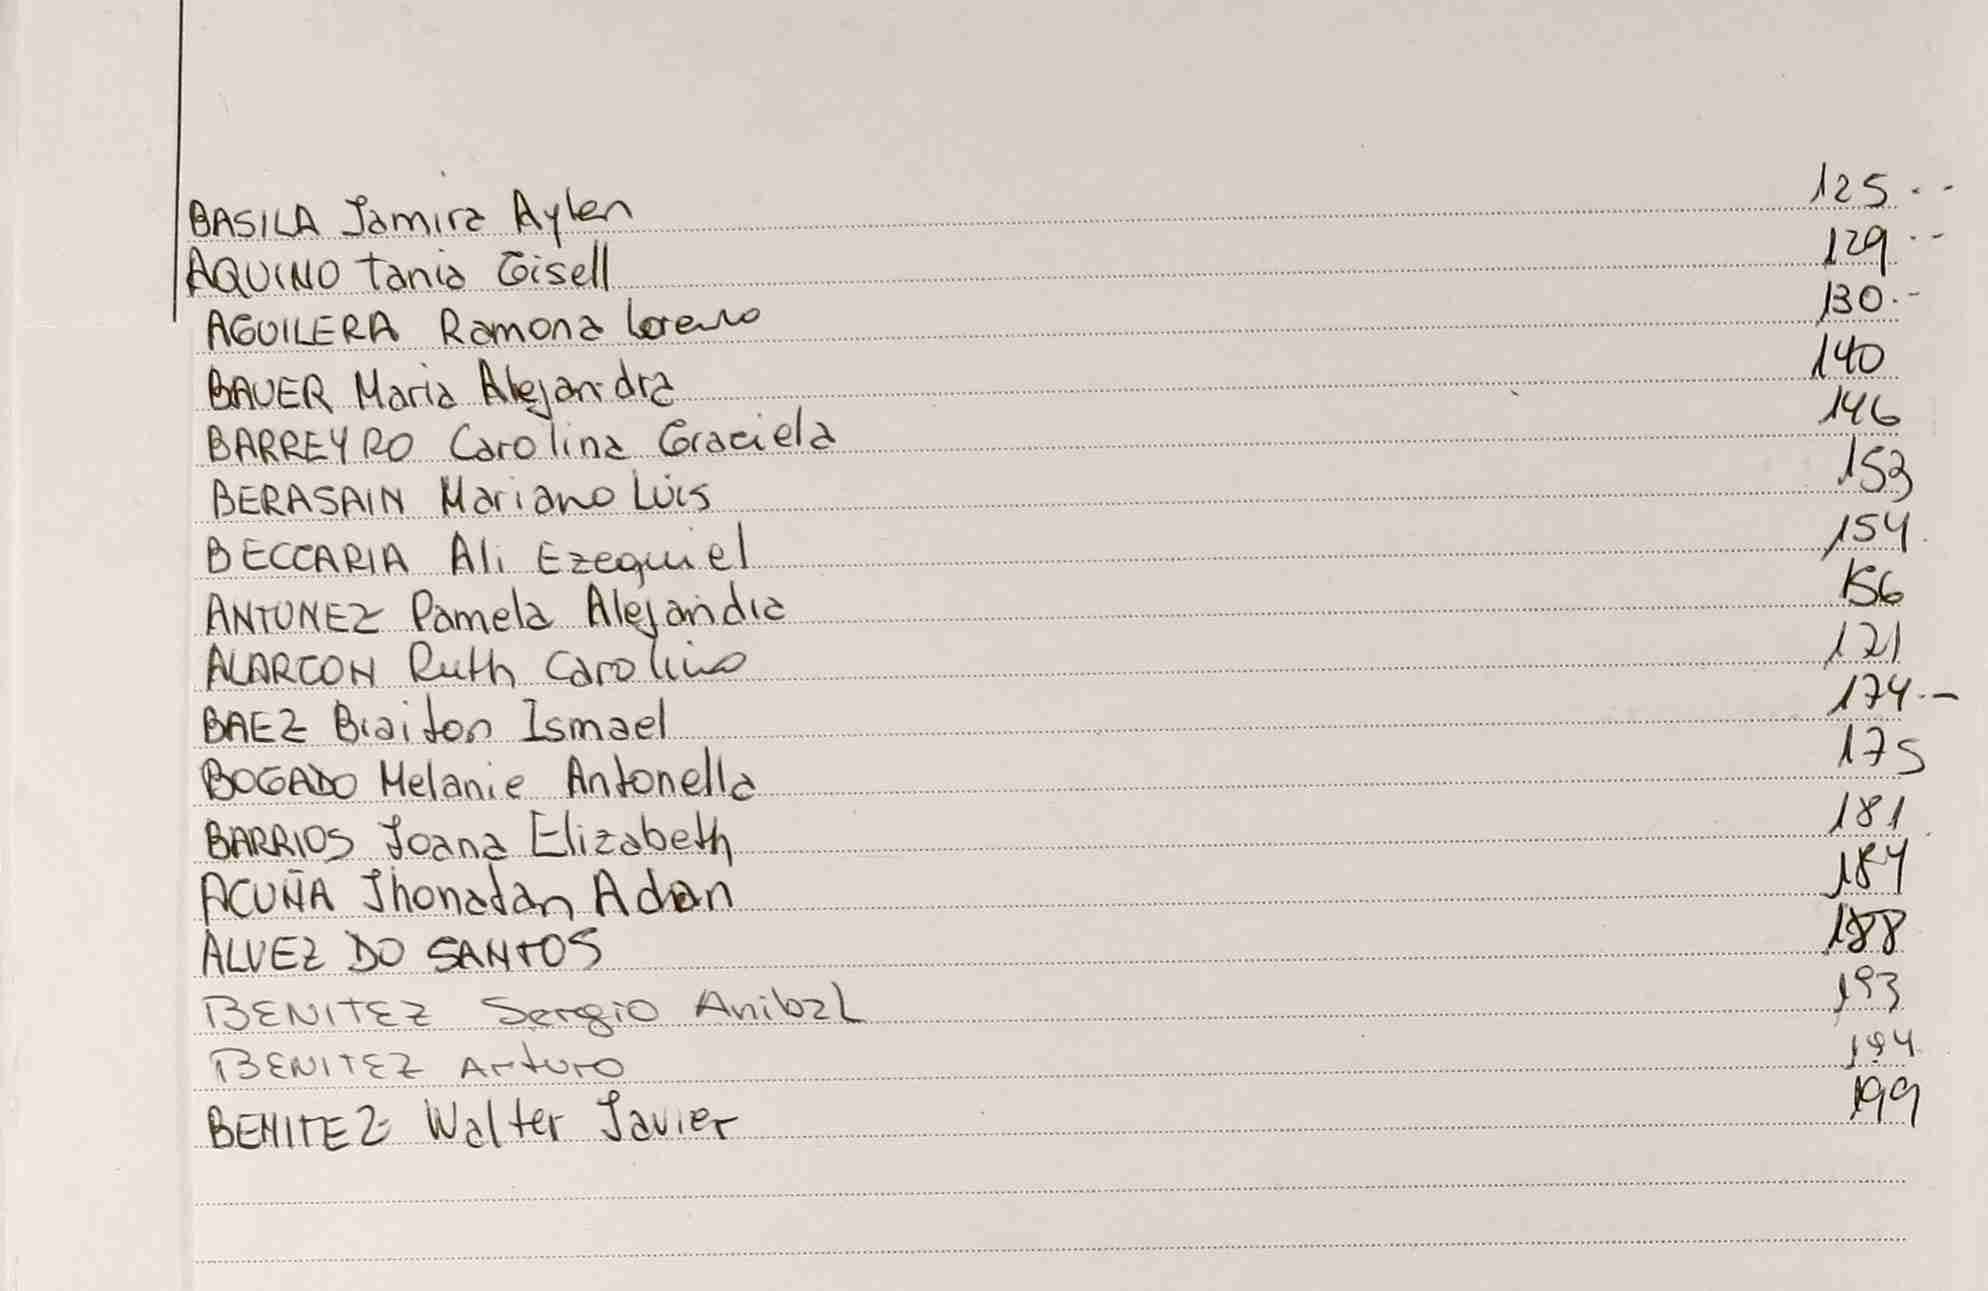 BASILA Jamira Aylen 125 . -
AQUINO Tania Gisell 129 . -
AGUILERA Ramona Lorena 130 . -
BAUER Maria Alejandra 140
BARREYRO Carolina Graciela 146
BERASAIN Mariano Luis 153
BECCARIA Ali Ezequiel 154
ANTUNEZ Pamela Alejandra 156
ALARCON Ruth Carolina 121
BAEZ Braiton Ismael 174 . -
BOGADO Melanie Antonella 175
BARRIOS Joana Elizabeth 181
ACUÑA Jhonatan Adan 184
ALVEZ DO SANTOS 188
BENITEZ Sergio Anibal 193
BENITEZ Arturo 194
BENITEZ Walter Javier 199